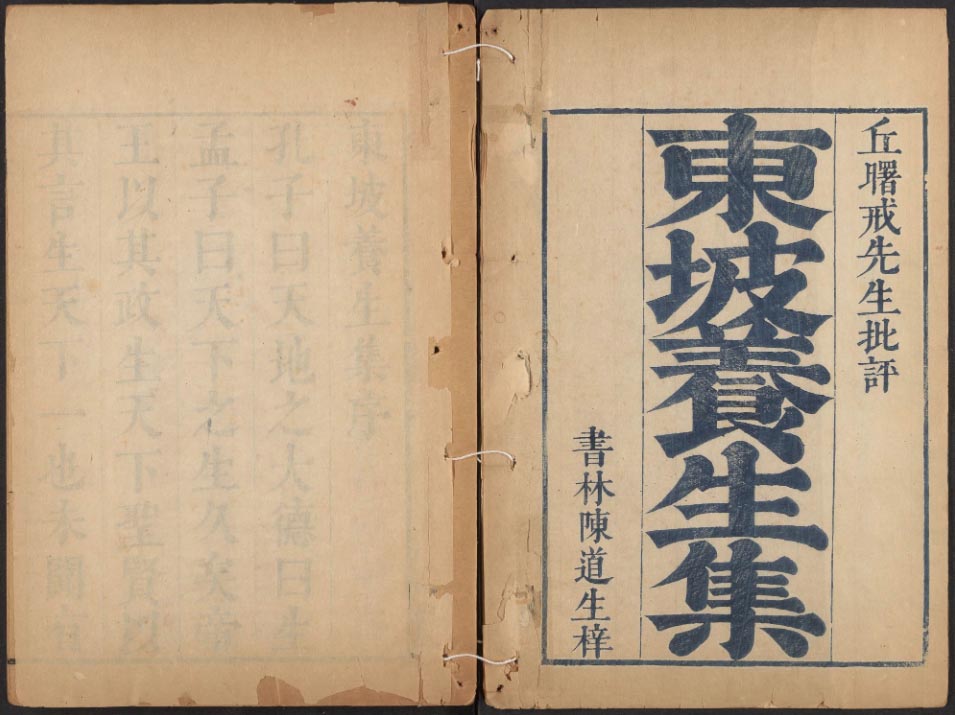 丘曙戒先生批評
東坡養生集
書林陳道生梓
東坡養生集序
孔子曰天地之大德曰生
孟子曰天下之生久矣帝
王以其政生天下聖賢以
其言生天下一也未聞有